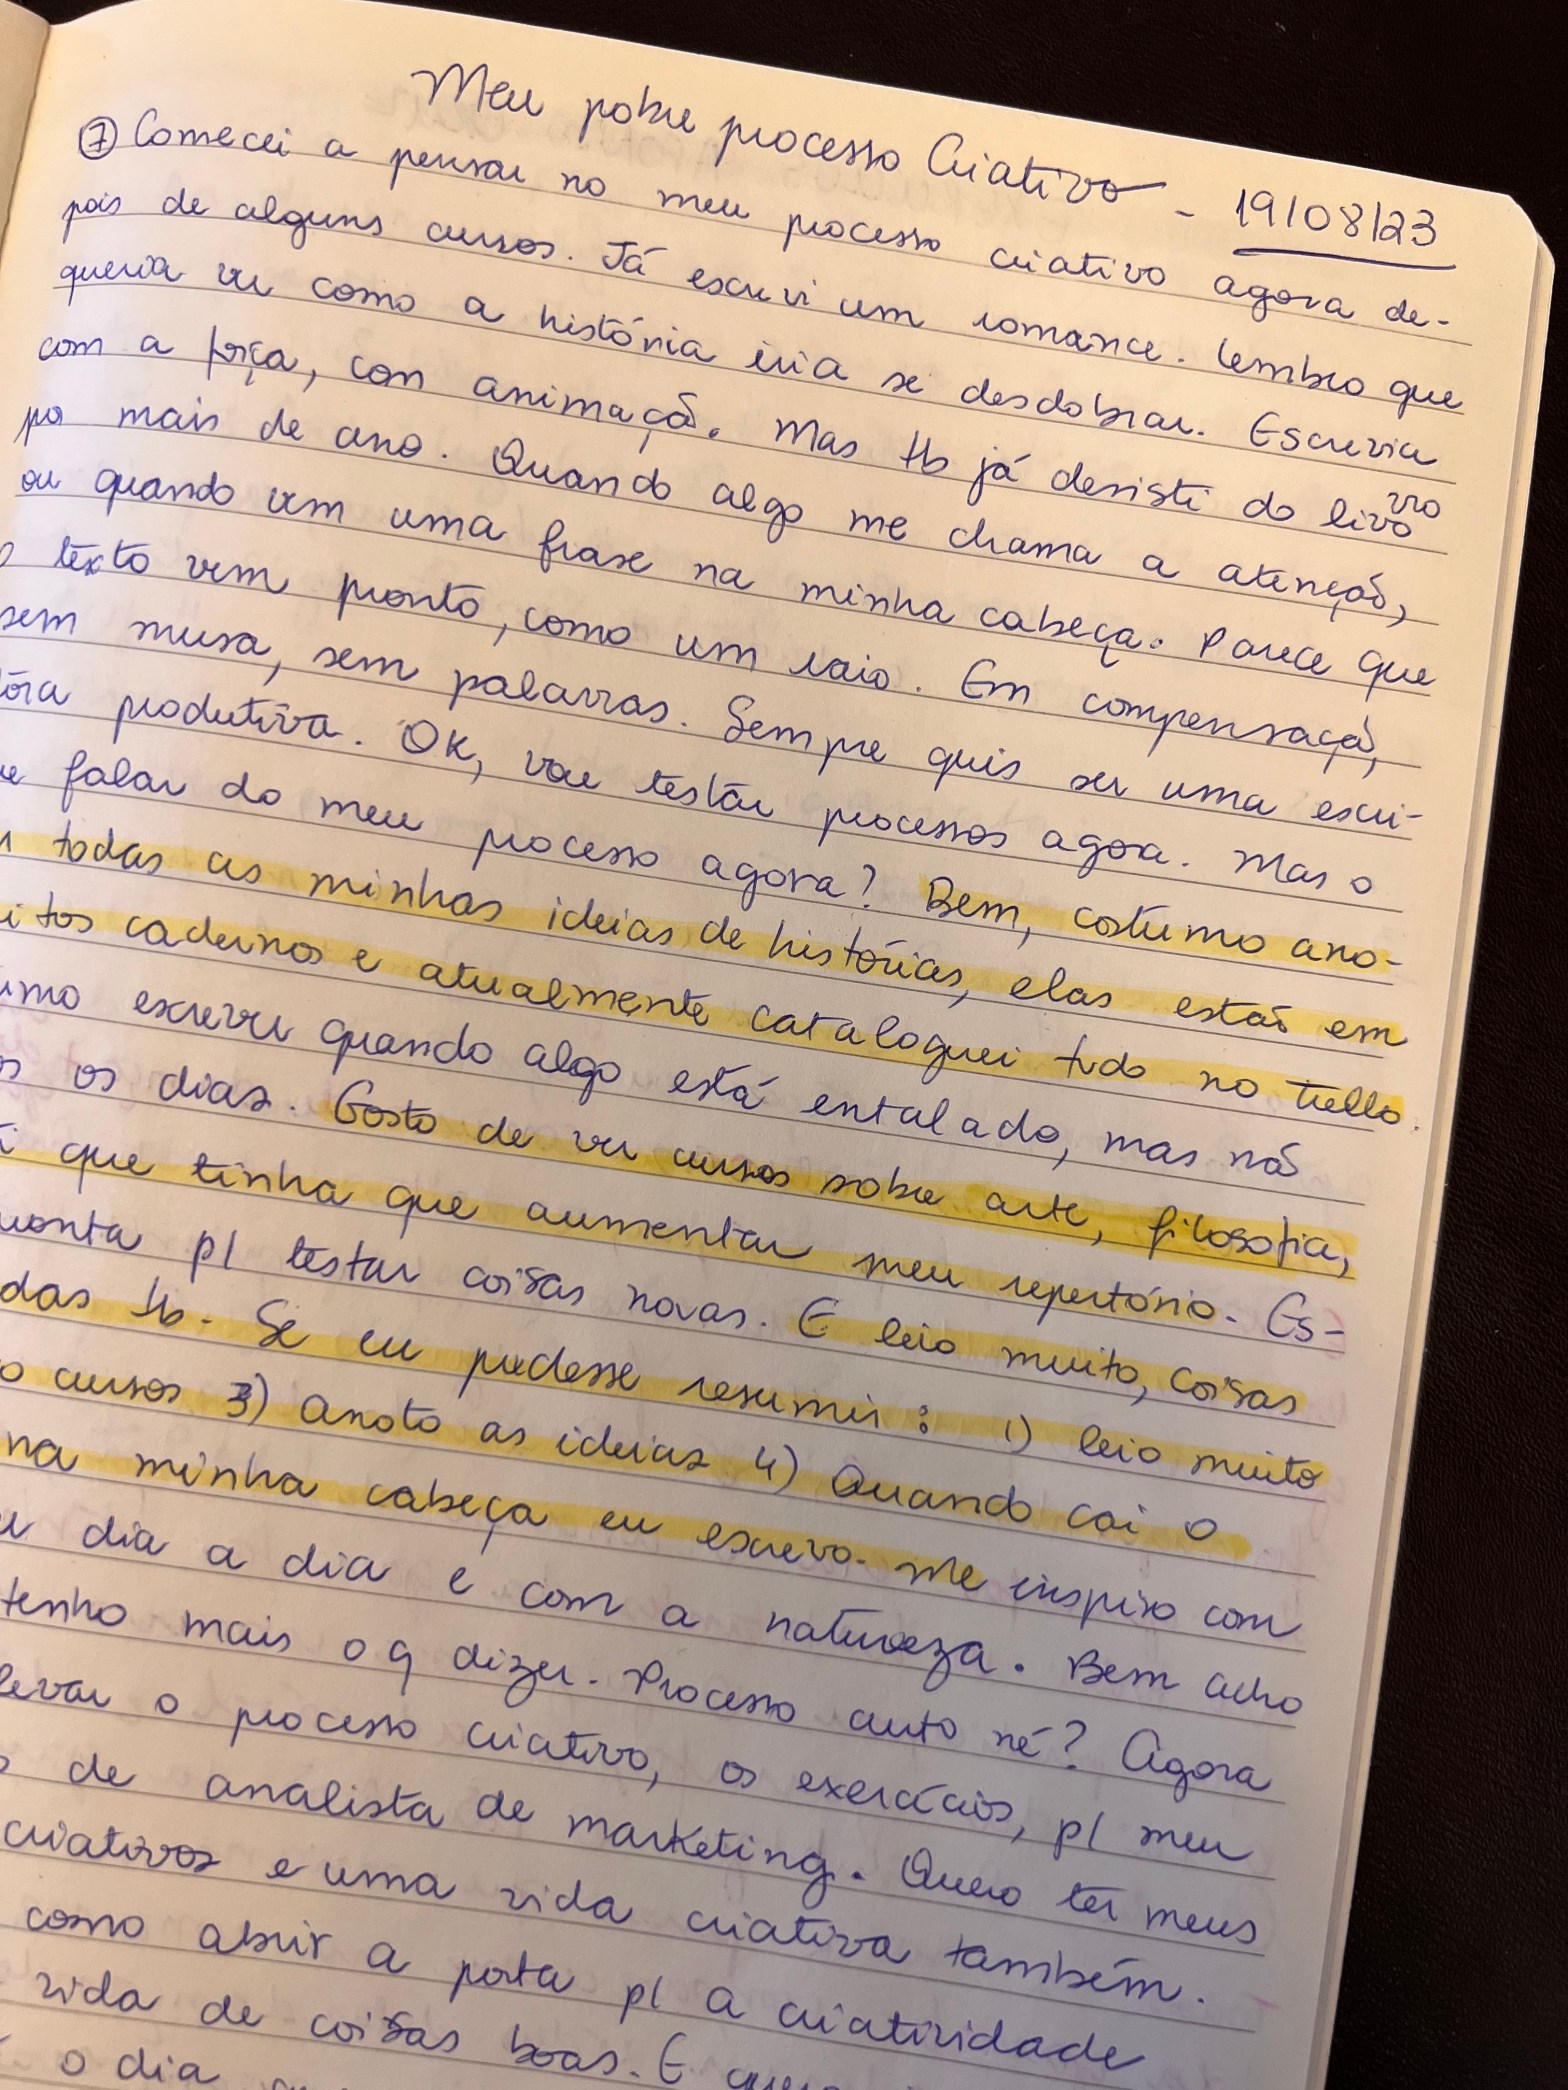 Meu pobre processo Criativo - 19/08/23
7 Comecei a pensar no meu processo criativo agora de-
pois de alguns cursos. Já escrevi um romance. Lembro que
queria ver como a história iria se desdobrar. Escrevia
com a força, con animação. Mas tb já desisti do livro
por mais de ano. Quando algo me chama a atenção,
ou quando vem uma frase na minha cabeça. Parece que
o texto vem pronto, como um raio. Em compensação,
sem musa, sem palavras. Sempre quis ser uma escri-
tora produtiva. OK, vou testar processos agora. Mas o
falar do meu processo agora? Bem, costumo ano-
todas as minhas ideias de histórias, elas estão em
cadernos e atualmente cataloguei tudo no trello.
escrever quando algo está entalado, mas não
os dias. Gosto de ver cursos sobre arte, filosofia,
que tinha que aumentar meu repertório. Es-
p/ testar coisas novas. E leio muito, coisas
tb. Se eu pudesse resumir: 1) leio muito
cursos 3) Anoto as ideias 4) Quando cai o
na minha cabeça eu escrevo. Me inspiro com
dia a dia e com a natureza. Bem acho
tenho mais o q dizer. Processo curto né? Agora
levar o processo criativo, os exercícios, p/ meu
de analista de marketing. Quero ter meus
criativos e uma vida criativa também.
como abrir a porta p/ a criatividade
vida de coisas boas. E
o dia